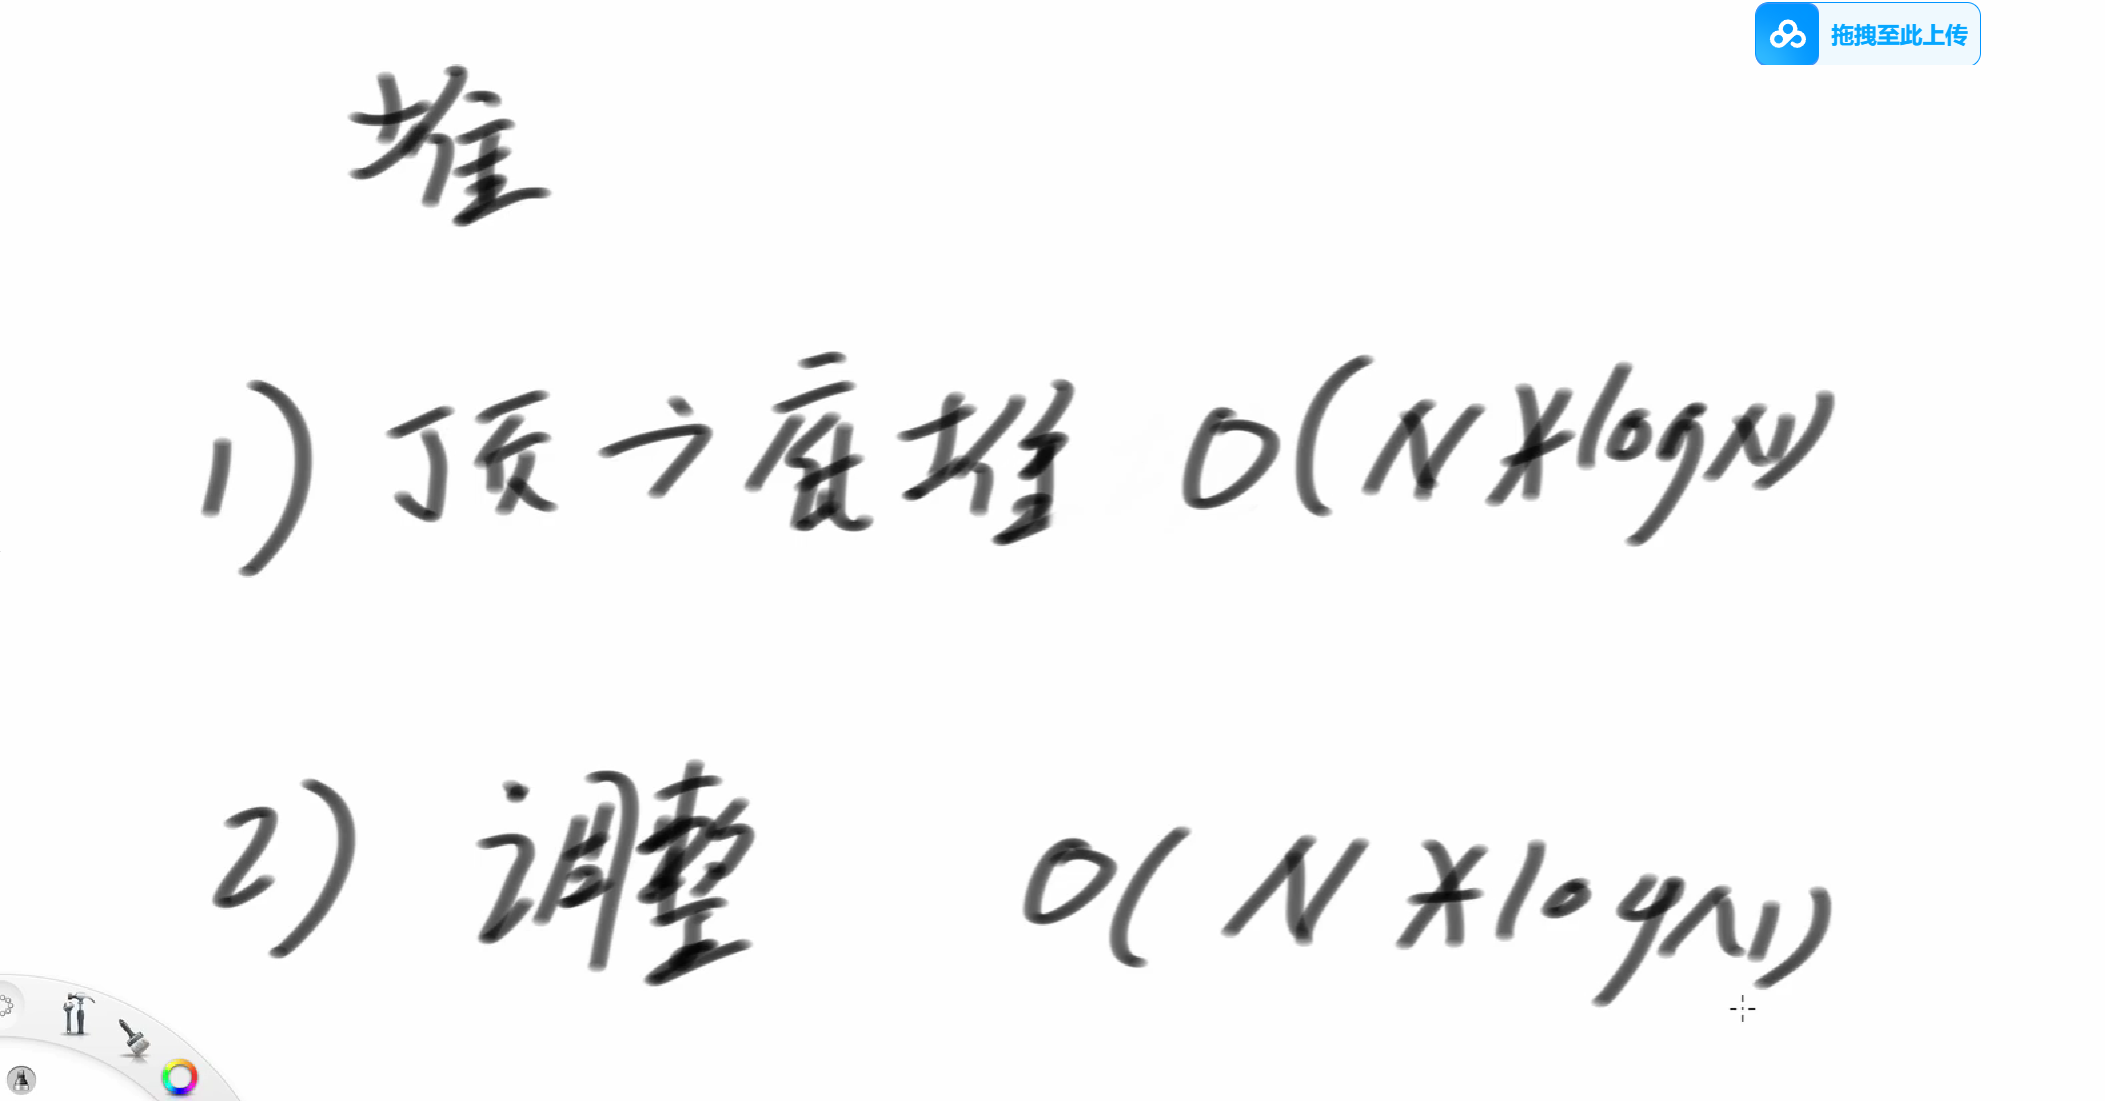 拖拽至此上传
堆
1) 顶→底堆 O(N*logN)
2) 调整 O(N*logN)